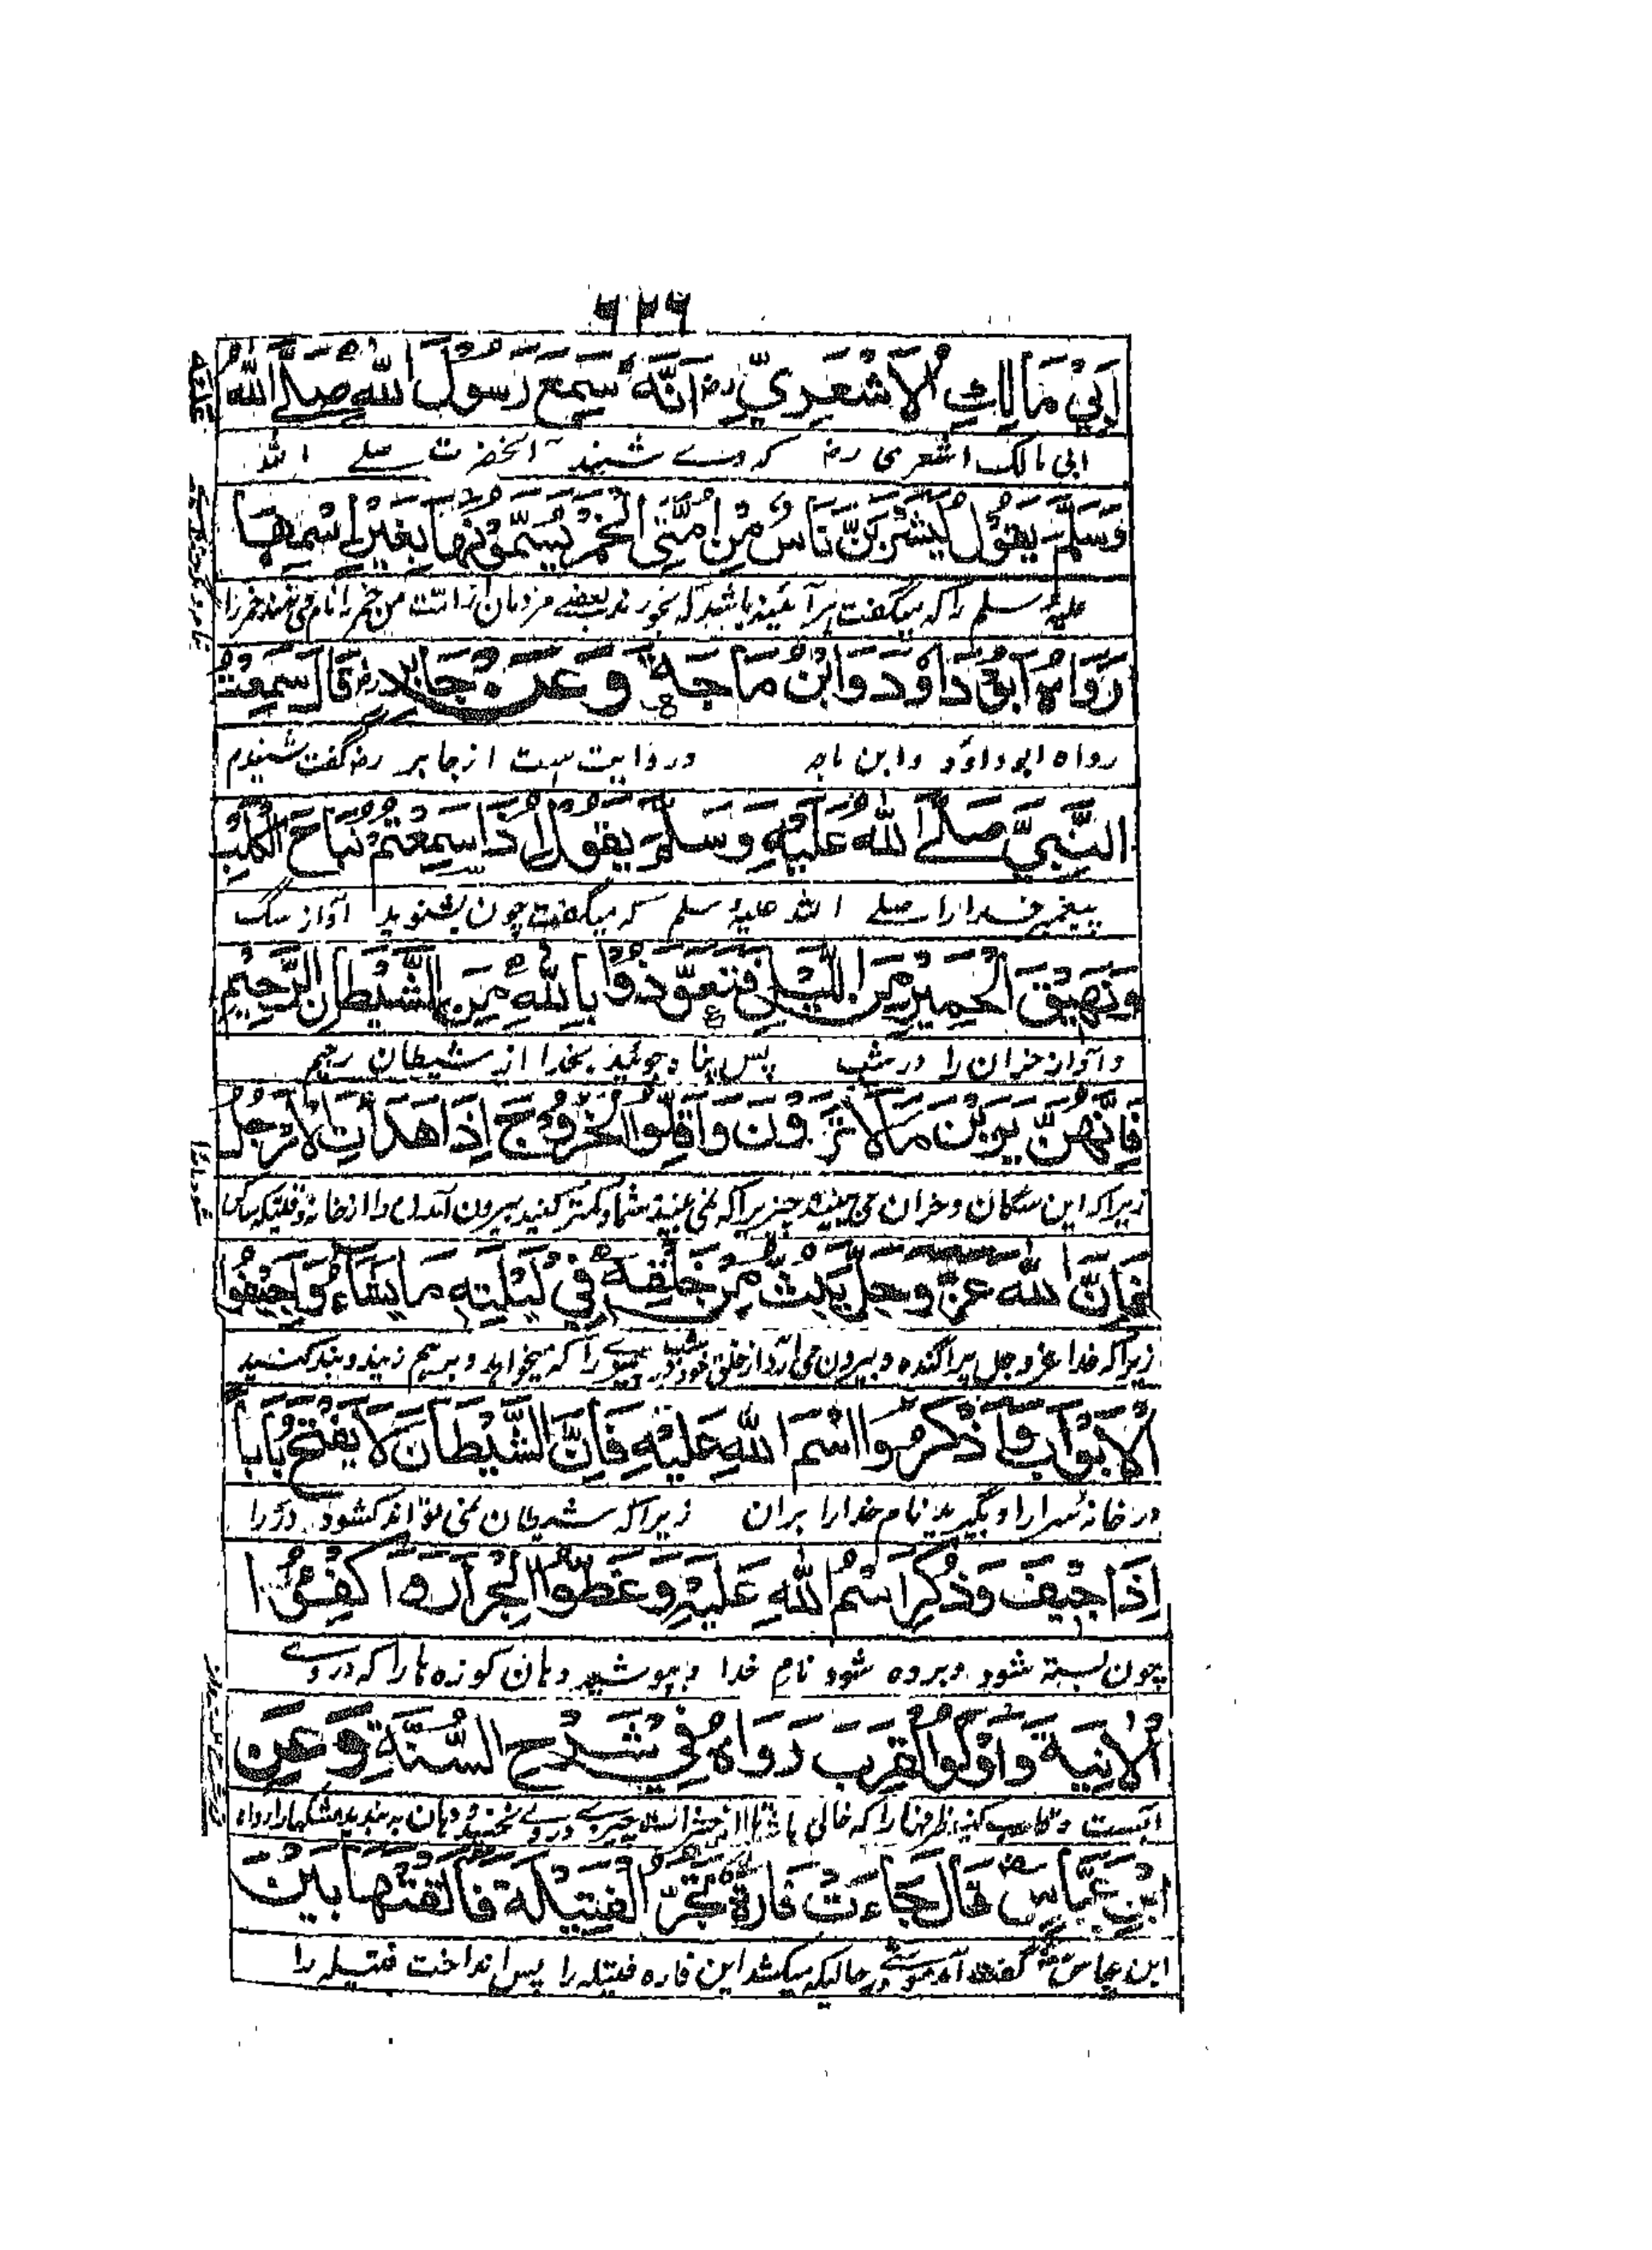 ۶۲۶
اَبِيْ مَالِكِ الْاَشْعَرِيِّ رض اَنَّهٗ سَمِعَ رَسُوْلَ اللّٰهِ صَلَّے اللّٰهُ عَلَيْهِ
ابی مالک اشعری رض که وے شنید آنحضرت صلے الله
وَسَلَّمَ يَقُوْلُ لَيَشْرَبَنَّ نَاسٌ مِّنْ اُمَّتِي الْخَمْرَ يُسَمُّوْنَهَا بِغَيْرِ اسْمِهَا
علیه سلم را که میگفت هر آئینه باشد که بخورند بعضے مردمان از امت من خمر را نام می نهند خمر را
رَوَاهُ اَبُوْ دَاوٗدَ وَابْنُ مَاجَةَ وَعَنْ جَابِرٍ رض قَالَ سَمِعْتُ
رواه ابو داؤد وابن ماجه وروایت ست از جابر رض گفت شنیدم
النَّبِيَّ صَلَّے اللّٰهُ عَلَيْهِ وَسَلَّمَ يَقُوْلُ اِذَا سَمِعْتُمْ نُبَاحَ الْكَلْبِ
پیغمبر خدا را صلے الله علیه سلم که میگفت چون بشنوید آواز سگ
وَنَهِيْقَ الْحَمِيْرِ مِنَ اللَّيْلِ فَتَعَوَّذُوْا بِاللّٰهِ مِنَ الشَّيْطَانِ الرَّجِيْمِ
و آواز خران را در شب پس پناه جوئید بخدا از شیطان رجیم
فَاِنَّهُنَّ يَرَيْنَ مَا لَا تَرَوْنَ وَاَقِلُّوا الْخُرُوْجَ اِذَا هَدَاَتِ الْاَرْجُلُ
زیرا که این سگان و خران می بینند چیزیرا که نمی بینید شما و کمتر کنید بیرون آمدن را از خانه وقتیکه
فَاِنَّ اللّٰهَ عَزَّ وَجَلَّ يَبُثُّ مِنْ خَلْقِهٖ فِيْ لَيْلَتِهٖ مَا يَشَاءُ وَاَجِيْفُوا
زیرا که خدا عز و جل پراکنده و بیرون می آرد از خلق خود در شب را که میخواهد و برهم زنید و بند کنید
الْاَبْوَابَ وَاذْكُرُوا اسْمَ اللّٰهِ عَلَيْهِ فَاِنَّ الشَّيْطَانَ لَا يَفْتَحُ بَابًا
در خانه را و بگیرید نام خدا را بران زیرا که شیطان نمی تواند کشود در را
اِذَا اُجِيْفَ وَذُكِرَ اسْمُ اللّٰهِ عَلَيْهِ وَغَطُّوا الْجِرَارَ وَاَكْفِئُوا
چون بسته شود و برده شود نام خدا و بپوشید دهان کوزه ها را که در وے
الْاٰنِيَةَ وَاَوْكُوا الْقِرَبَ رَوَاهُ فِيْ شَرْحِ السُّنَّةِ وَعَنِ
آبست کنید ظرفها را که خالی در وے دهان به بندید مشکها را رواه
ابْنِ عَبَّاسٍ رض قَالَ جَاءَتْ فَارَةٌ تَجُرُّ الْفَتِيْلَةَ فَاَلْقَتْهَا بَيْنَ
ابن عباس گفت آمد موشے در حالیکه میکشد این فاره فتیله را پس انداخت فتیله را